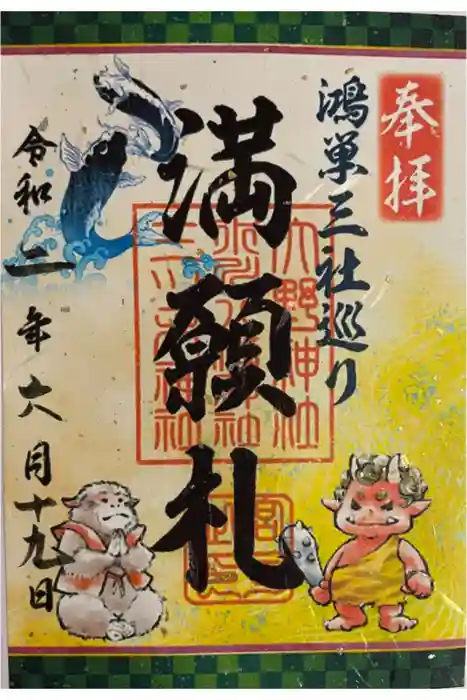 奉拝
鴻巣三社巡り
満願札
令和二年六月十九日